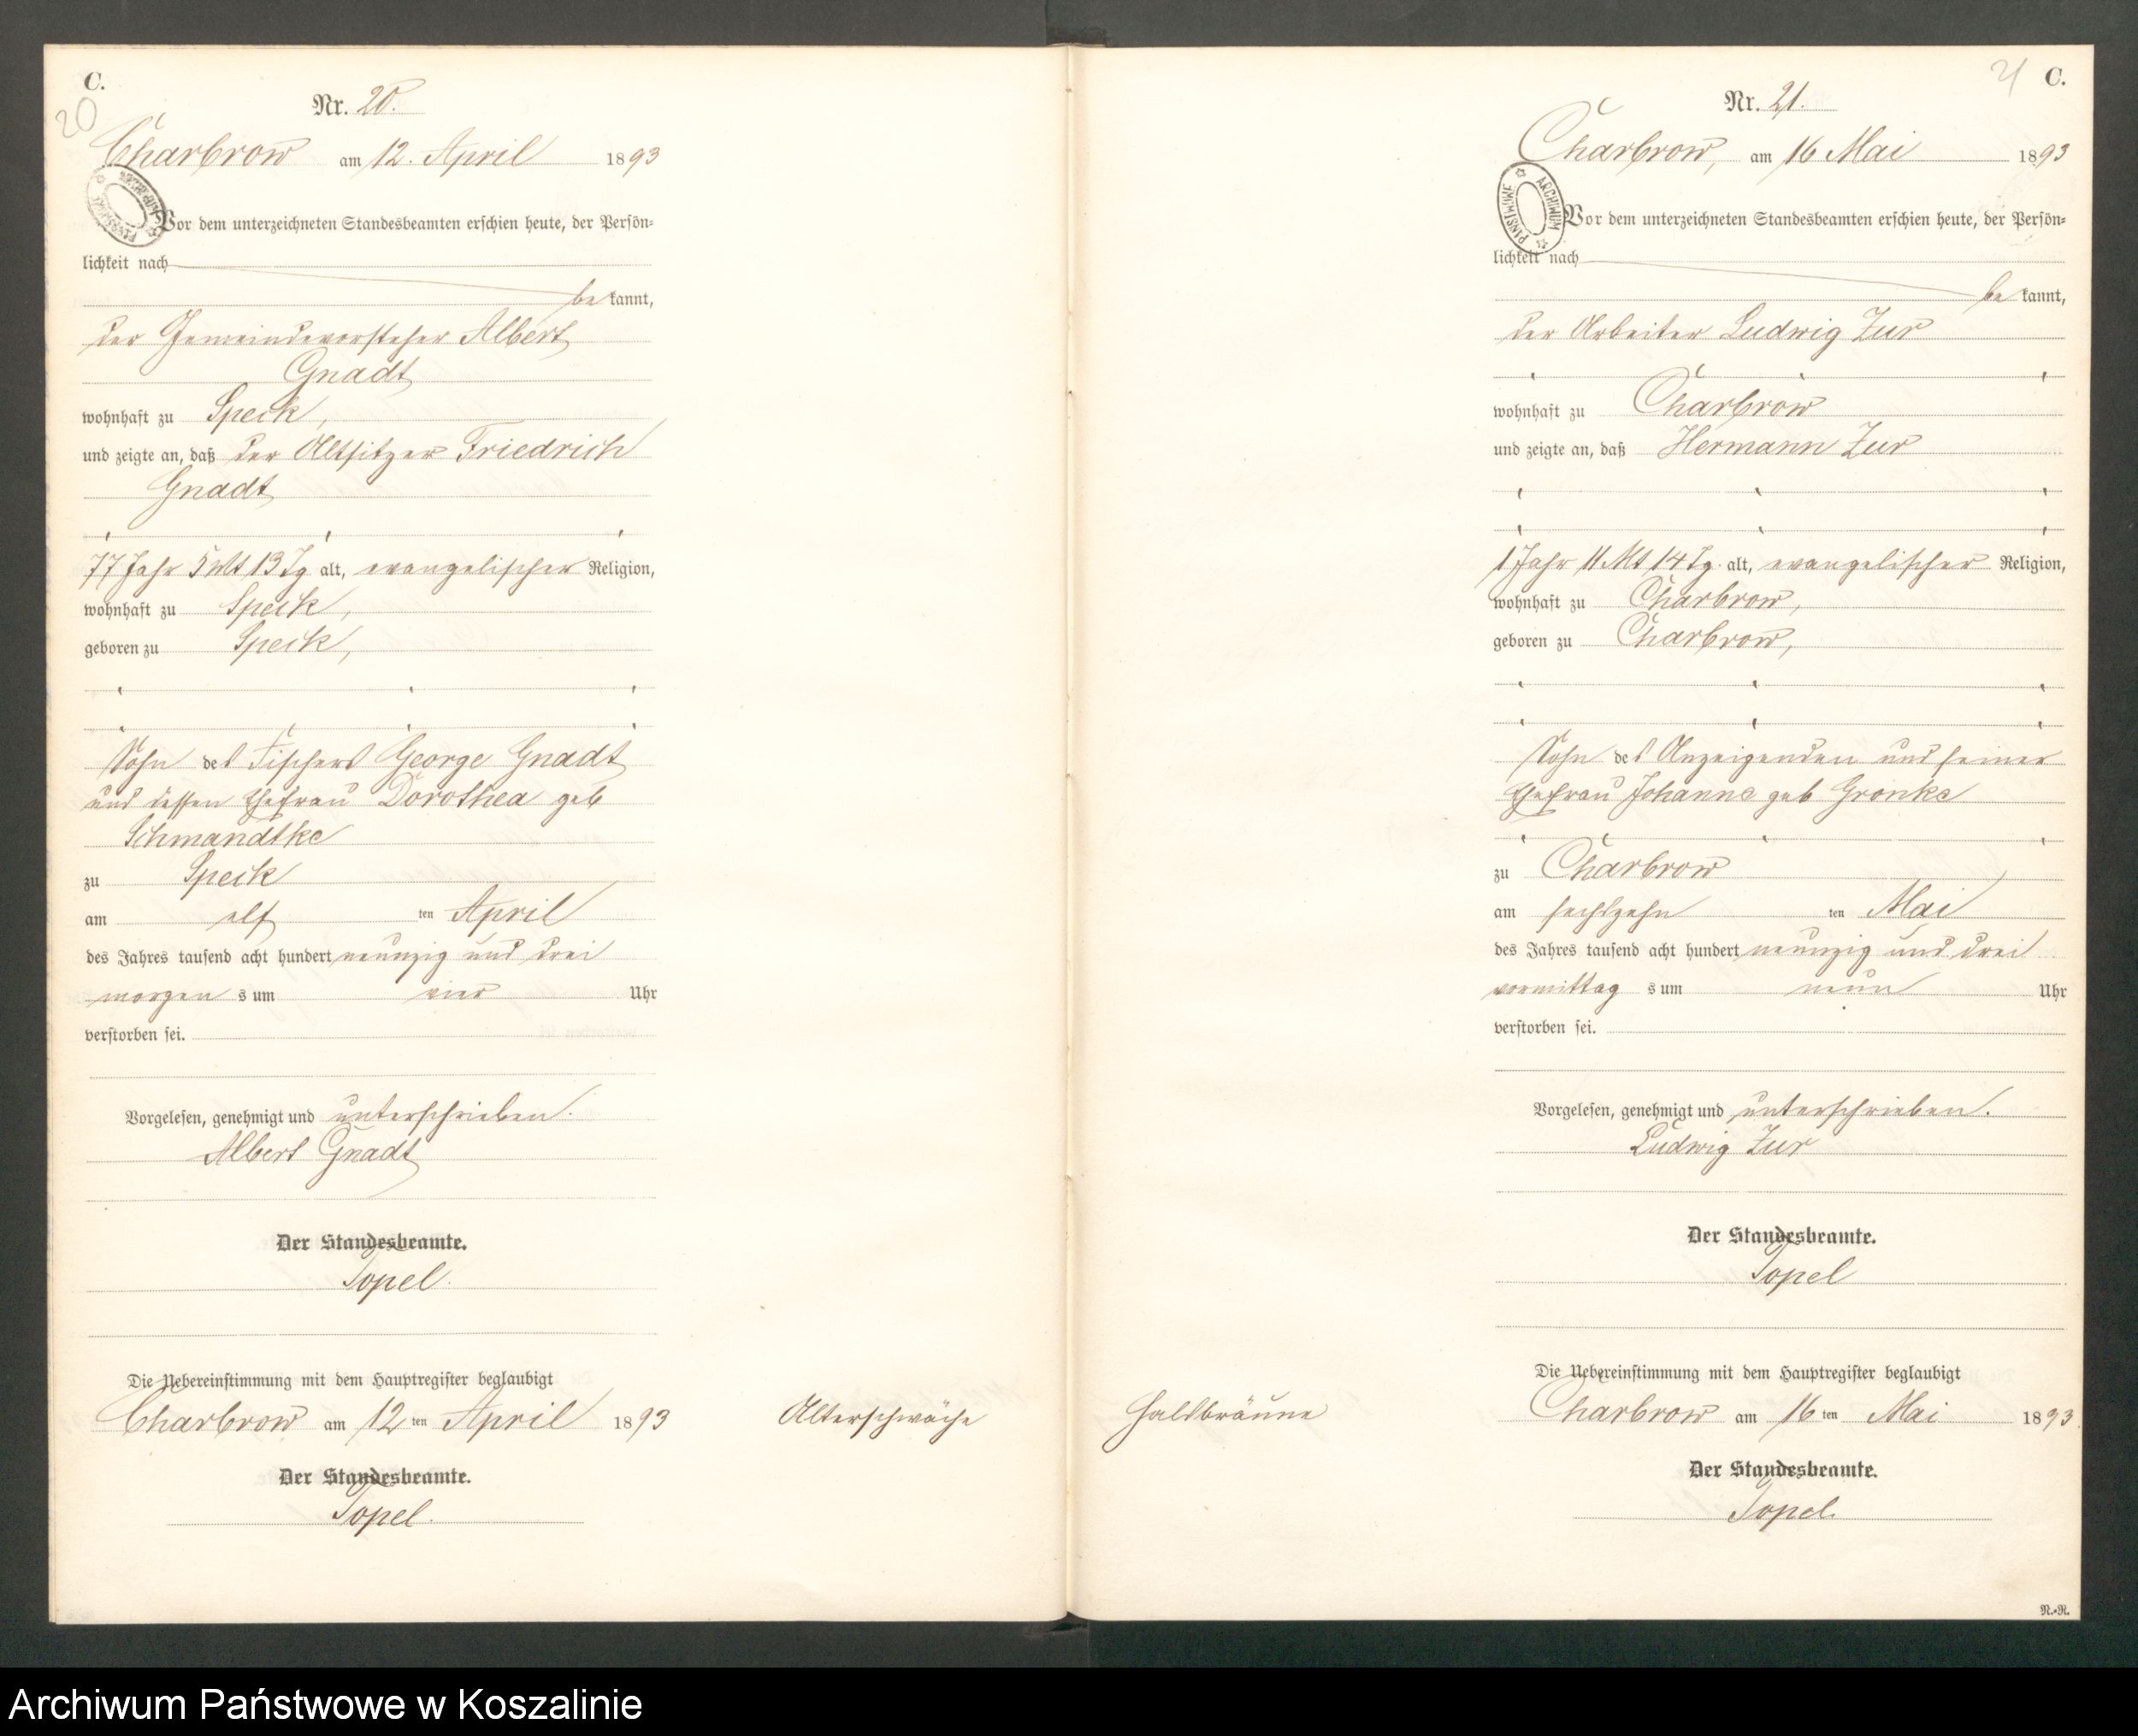 C.
20
Nr. 20.
Charbrow am 12. April 1893
ARCHIWUM PAŃSTWOWE
Vor dem unterzeichneten Standesbeamten erschien heute, der Persön-
lichkeit nach
be kannt,
der Gemeindevorsteher Albert
Gnadt
wohnhaft zu Speck,
und zeigte an, daß der Altsitzer Friedrich
Gnadt
77 Jahr 5 Mt 13 Tg alt, evangelischer Religion,
wohnhaft zu Speck,
geboren zu Speck,
Sohn des Fischers George Gnadt
und dessen Ehefrau Dorothea geb
Schmandtke
zu Speck
am elf ten April
des Jahres tausend acht hundert neunzig und drei
morgen s um vier Uhr
verstorben sei.
Vorgelesen, genehmigt und unterschrieben.
Albert Gnadt
Der Standesbeamte.
Topel.
Die Uebereinstimmung mit dem Hauptregister beglaubigt
Charbrow am 12 ten April 1893
Der Standesbeamte.
Topel.
Alterschwäche
21 C.
Nr. 21.
Charbrow, am 16 Mai 1893
ARCHIWUM PAŃSTWOWE
Vor dem unterzeichneten Standesbeamten erschien heute, der Persön-
lichkeit nach
be kannt,
der Arbeiter Ludwig Zur
wohnhaft zu Charbrow
und zeigte an, daß Hermann Zur
1 Jahr 11 Mt 14 Tg. alt, evangelischer Religion,
wohnhaft zu Charbrow,
geboren zu Charbrow,
Sohn des Anzeigenden und seiner
Ehefrau Johanne geb Gronke
zu Charbrow
am sechszehn ten Mai
des Jahres tausend acht hundert neunzig und drei
vormittag s um neun Uhr
verstorben sei.
Vorgelesen, genehmigt und unterschrieben.
Ludwig Zur
Der Standesbeamte.
Topel
Die Uebereinstimmung mit dem Hauptregister beglaubigt
Charbrow am 16 ten Mai 1893
Der Standesbeamte.
Topel.
Halsbräune
N.-R.
Archiwum Państwowe w Koszalinie